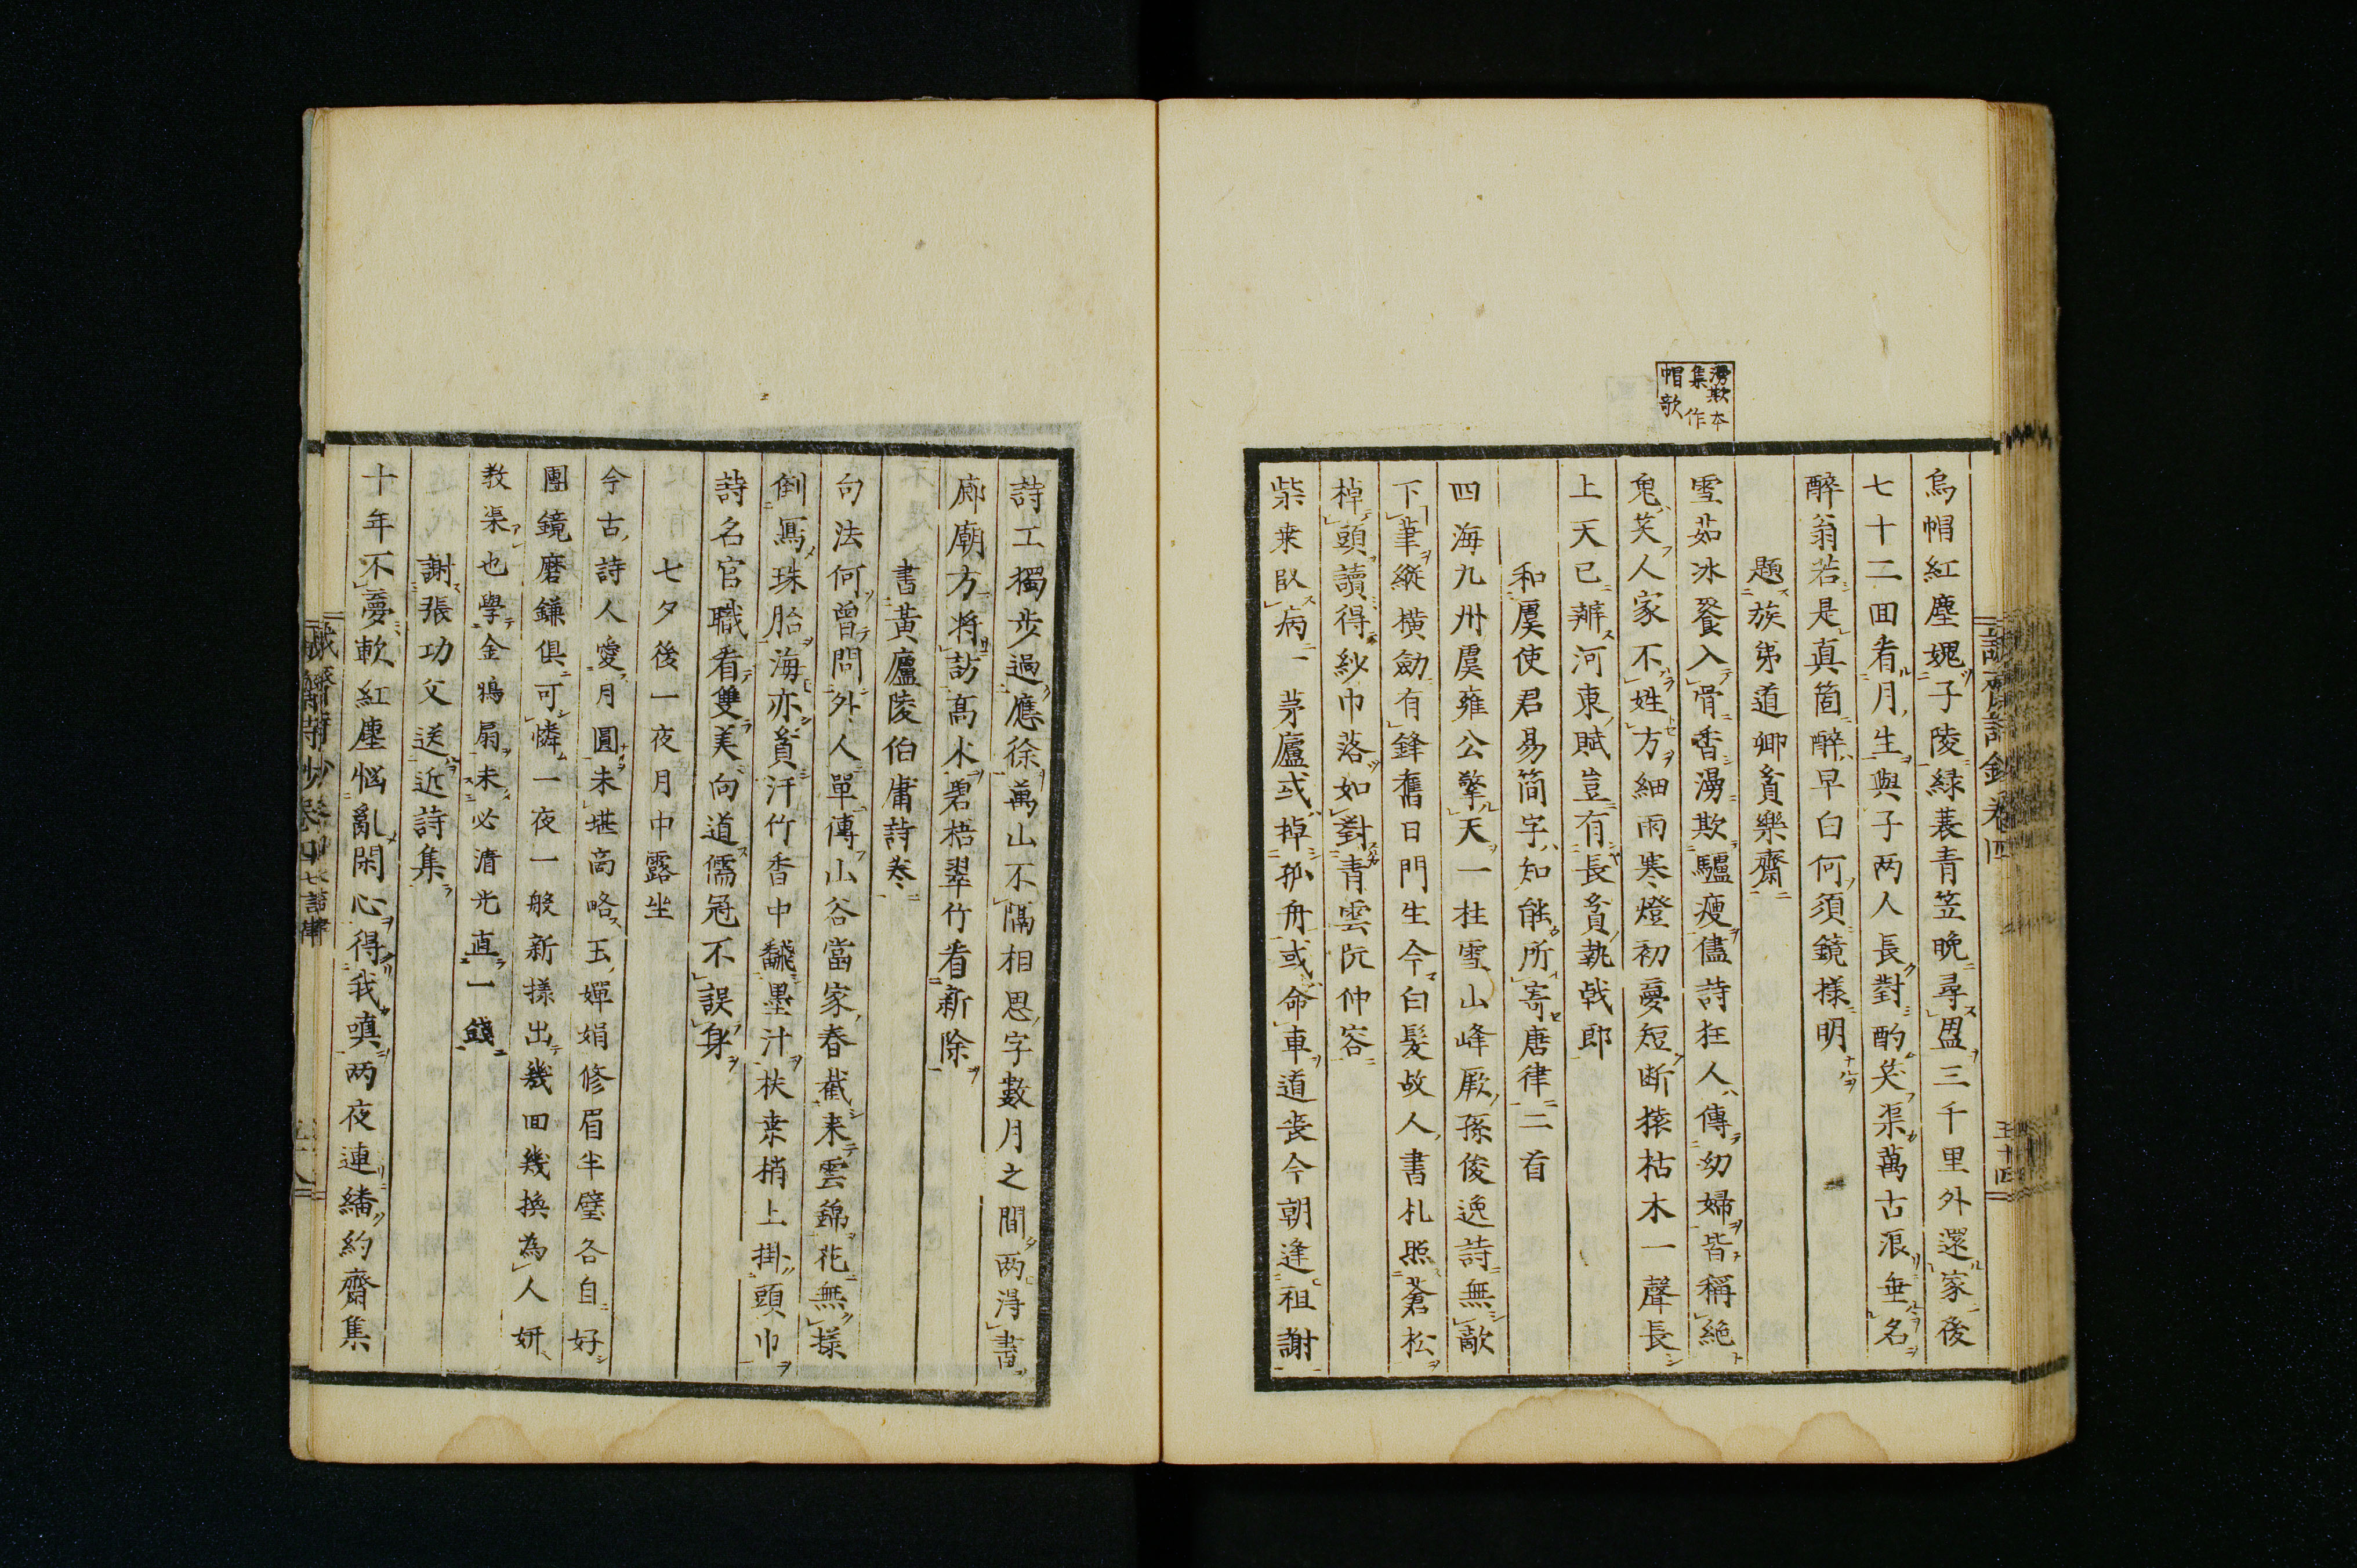 烏帽紅塵媿子陵緑蓑青笠晩尋盟三千里外還家後
七十二回看月生與子两人長對酌笑渠萬古浪垂名
醉翁若是真箇醉早白何須鏡樣明
題族弟道卿貧樂齋
雪茹冰餐入骨香湯欺驢瘦儘詩狂人傳幼婦皆稱絶
鬼笑人家不姓方細雨寒燈初夢短断猿枯木一聲長
上天已辦河東賦豈有長貧執戟郎
和虞使君易簡字知能所寄唐律二首
四海九州虞雍公擎天一柱雪山峰厥孫俊逸詩無敵
下筆縱横劒有鋒舊日門生今白髮故人書札照蒼松
掉頭讀得紗巾落如對青雲阮仲容
柴桒臥病一茅廬或掉孤舟或命車道喪今朝逢祖謝
集作
帽歌
詩工獨步過應徐萬山不隔相思字數月之間两淂書
廊廟方將訪髙木碧梧翠竹看新除
書黃廬陵伯庸詩卷
句法何曾問外人單傳山谷當家春截来雲錦花無樣
倒寫珠胎海亦貧汗竹香中飜墨汁扶桒梢上掛頭巾
詩名官職看雙美向道儒冠不誤身
七夕後一夜月中露坐
今古詩人愛月圓未堪高略玉嬋娟修眉半璧各自好
團鏡磨鎌俱可憐一夜一般新樣出幾回幾換為人妍
教渠也學金鴉扇未必清光直一錢
謝張功父送近詩集
十年不夢軟紅塵惱亂閑心得我嗔两夜連繙約齋集
誠齋詩鈔卷四
五十四
七言律